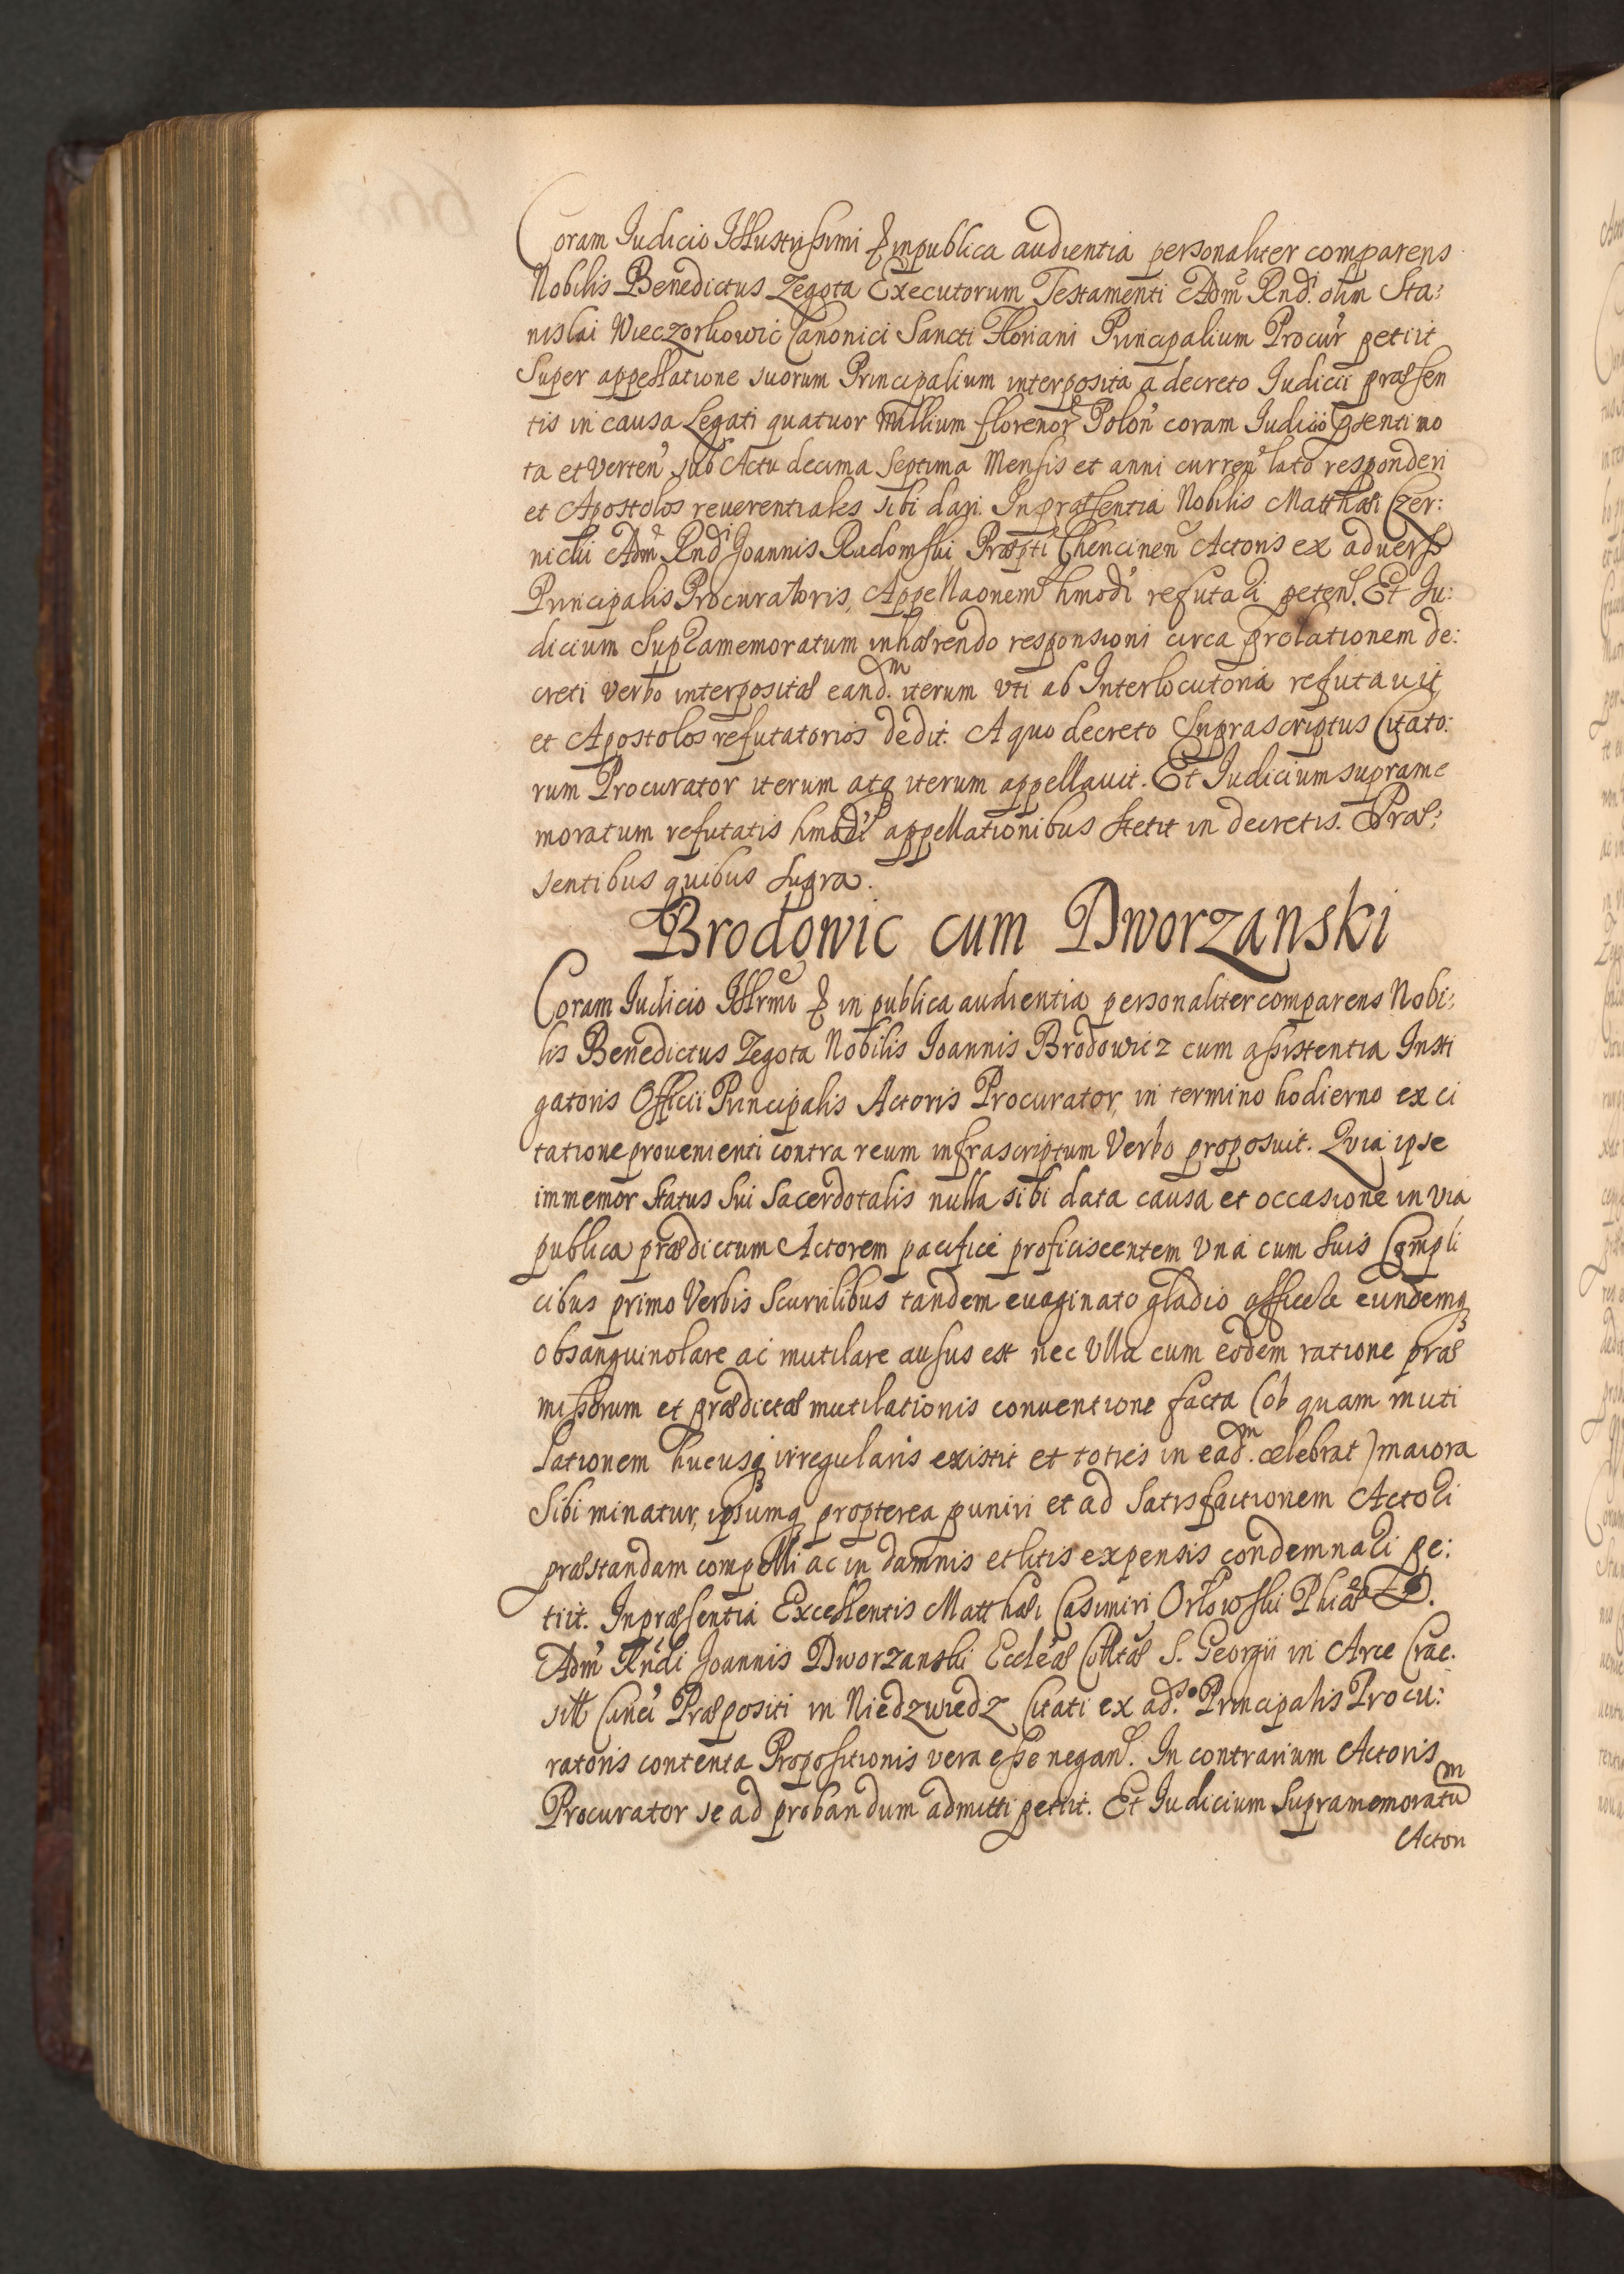 Coram Judicio Illustrissimi & in publica audientia personaliter comparens
Nobilis Benedictus Zegota Executorum Testamenti Adm Rnd. olim Sta:
nislai Wieczorkowic Canonici Sancti Floriani Principalium Procur petiit
Super appellatione suorum Principalium interposita a decreto Judicii præsen
tis in causa Legati quatuor Millium florenor Polon coram Judicio pręsenti mo
ta et Verten sub Actu decima Septima Mensis et anni curren lato responderi
et Apostolos reuerentiales sibi dari. In præsentia Nobilis Matthæi Czer:
nicki Adm Rnd Joannis Radomski Præpti Chencinen Actoris ex aduerso
Principalis Procuratoris, Appellaonem hmodi refutari peten. Et Ju:
dicium Supramemoratum inhærendo responsioni circa prolationem de:
creti Verbo interpositæ eand.m iterum vti ab Interlocutoria refutauit
et Apostolos refutatorios dedit. A quo decreto Suprascriptus Citato:
rum Procurator iterum atq iterum appellauit. Et Judicium suprame
moratum refutatis hmodi appellationibus stetit in decretis. Præ:
sentibus quibus supra.
Brodowic cum Dworzanski
Coram Judicio Illrmi & in publica audientia personaliter comparens Nobi:
lis Benedictus Zegota Nobilis Joannis Brodowicz cum assistentia Insti
gatoris Officii Principalis Actoris Procurator, in termino hodierno ex ci
tatione prouenienti contra reum infrascriptum Verbo proposuit. Quia ipse
immemor status sui Sacerdotalis nulla sibi data causa et occasione in via
publica prædictum Actorem pacifice proficiscentem Vna cum suis Compli
cibus primo Verbis Scurrilibus tandem euaginato gladio afficere eundemq
obsanguinolare ac mutilare ausus est nec Vlla cum eodem ratione præ
missorum et prædictæ mutilationis conuentione facta (ob quam muti
lationem hucusq irregularis existit et toties in ead.m celebrat) maiora
Sibi minatur, ipsumq propterea puniri et ad Satisfactionem Actori
præstandam compelli ac in damnis et litis expensis condemnari pe:
tiit. In præsentia Excellentis Matthæi Casimiri Orłowski Phiæ D.
Adm Rndi Joannis Dworzanski Eccleæ Colltæ S. Georgii in Arce Crac.
sitt Canci Præpositi in Niedzwiedz Citati ex ad.so Principalis Procu:
ratoris contenta Propositionis vera esse negan. In contrarium Actoris
Procurator se ad probandum admitti petiit. Et Judicium Supramemoratum
Actori